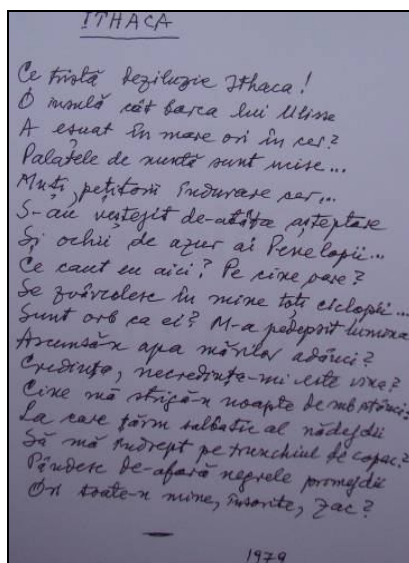 ITHACA
Ce tristă deziluzie Ithaca!
O insulă cât barca lui Ulisse
A eșuat în mare ori în cer?
Palatele de nuntă sunt ucise...
Muți, pețitorii îndurare cer...
S-au veștejit de-atâta așteptare
Și ochii de azur ai Penelopii...
Ce caut eu aici? Pe cine oare?
Se zvârcolesc în mine toți ciclopii...
Sunt orb ca ei? M-a pedepsit lumina
Ascunsă-n apa mărilor adânci?
Credința, necredința-mi este vina?
Cine mă strigă-n noapte de sub stânci?
La care țărm sălbatic al nădejdii
Să mă îndrept pe trunchiul de copac?
Pândesc de-afară negrele primejdii
Ori toate-n mine, însorite, zac?
1979